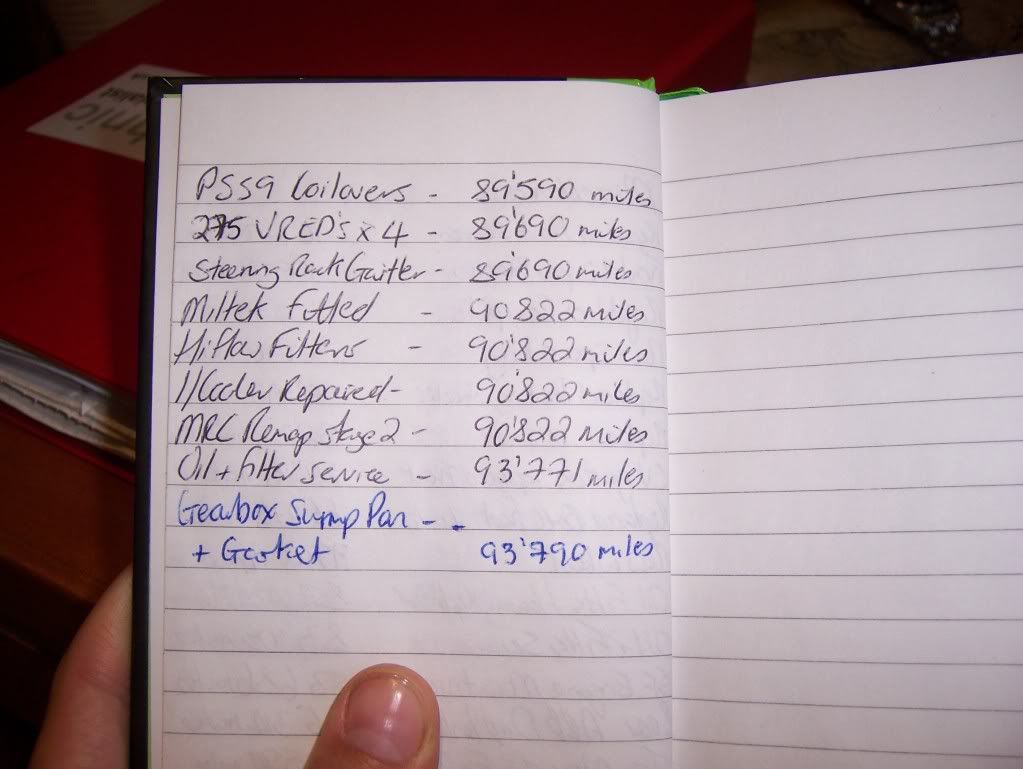 hnic
PSS9 Coilovers - 89'590 miles
275 VRED'S x 4 - 89'690 miles
Steering Rack Gaitter - 89'690 miles
Miltek Fitted - 90822 miles
Hiflow Filters - 90'822 miles
I/Cooler Repaired - 90'822 miles
MRC Remap Stage 2 - 90'822 miles
Oil + filter service - 93'771 miles
Gearbox Sump Pan - -
+ Gasket 93'790 miles